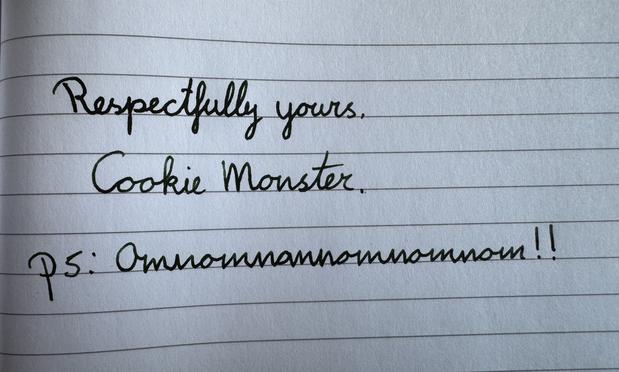 Respectfully yours.
Cookie Monster.
PS: Omnomnannomnomnom!!